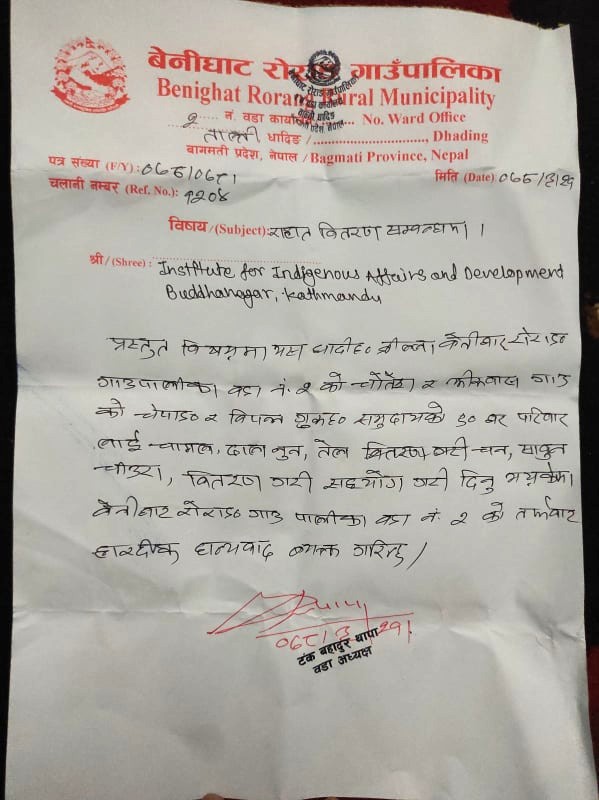 बेनीघाट रोराङ गाउँपालिका
Benighat Rorang Rural Municipality
२ नं. वडा कार्यालय ........ No. Ward Office
धादिङ /.............................., Dhading
बागमती प्रदेश, नेपाल / Bagmati Province, Nepal
पत्र संख्या (F/Y): ०७६/०७७
चलानी नम्बर (Ref. No.): १२०४
मिति (Date):
विषय/(Subject): राहात वितरण सम्बन्धमा ।
श्री/(Shree) : Institute for Indigenous Affairs and Development
Buddhanagar, Kathmandu
प्रस्तुत विषयमा यस धादीङ जील्ला बेनीघाट रोराङ
गाउपालीका वडा नं. २ को र गाउ
को चेपाङ र विपन्न समुदायको ६० घर परिवार
लाई चामल, दाल नुन, तेल वितरण गरी चना, सावुन
चीउरा, वितरण गरी सहयोग गरी दिनु भएकोमा
बेनीघाट रोराङ गाउ पालीका वडा नं. २ को तर्फवाट
हारदीक धन्यवाद व्यक्त गरिन्छ /
टंक बहादुर थापा
वडा अध्यक्ष